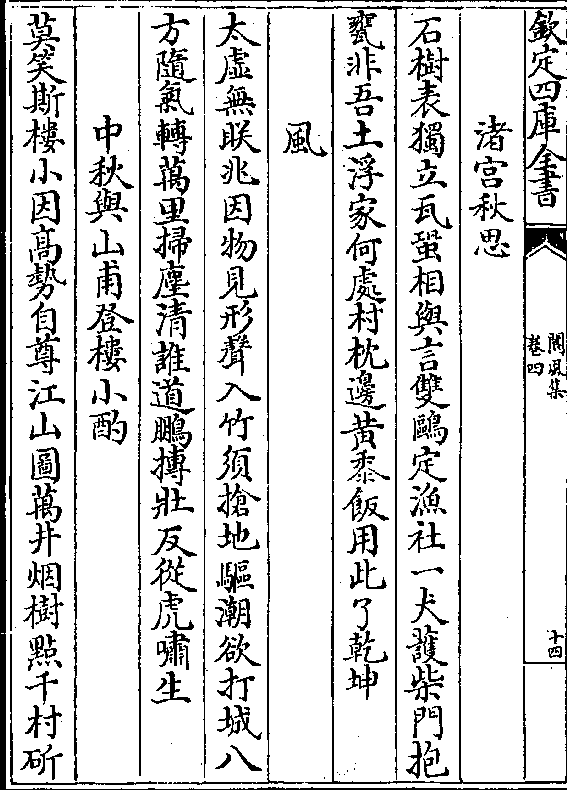 欽定四庫全書
閬風集
卷四
十四
渚宫秋思
石樹表獨立瓦蛩相與言雙鷗定漁社一犬護柴門抱
甕非吾土浮家何處村枕邊黄黍飯用此了乾坤
風
太虛無眹兆因物見形聲入竹須搶地驅潮欲打城八
方隨氣轉萬里掃塵清誰道鵬摶壯反從虎嘯生
中秋與山甫登樓小酌
莫笑斯樓小因髙勢自尊江山圖萬井烟樹㸃千村斫